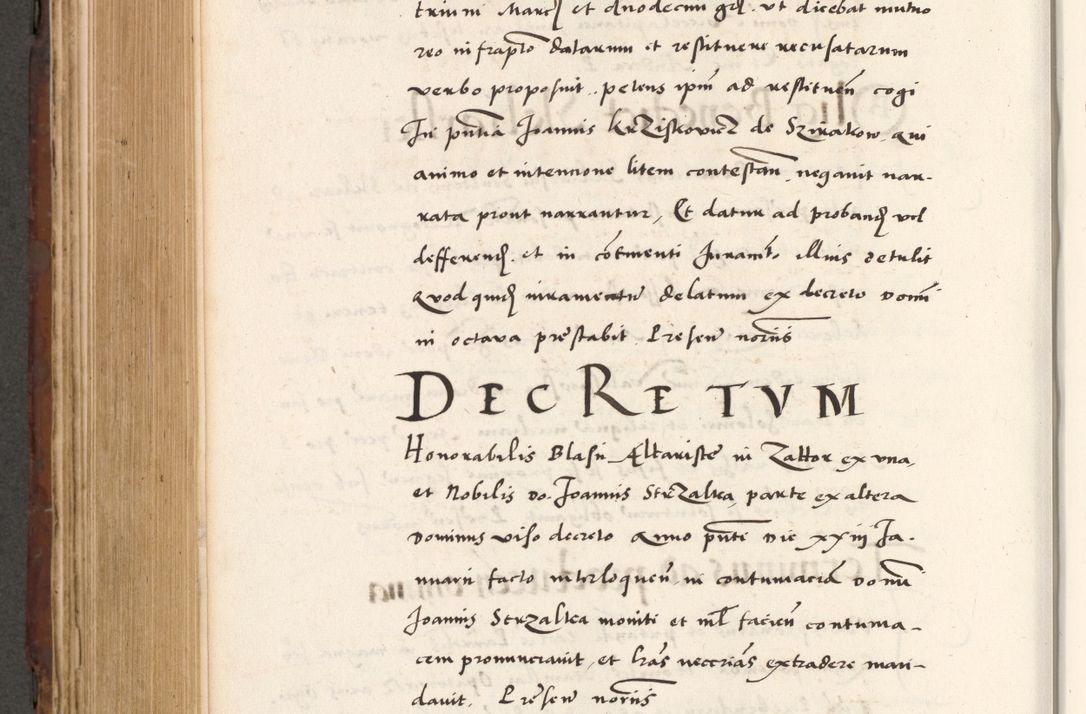 trium Marcȝ et duodecim grȝ. ut dicebat mutuo
reo infrapto datarum et restituere recusatarum
verbo proposuit. petens ipm ad restituen cogi
In pntia Joannis krZiskovicZ de Szirakow. qui
animo et intencione litem contestan. negavit nar-
rata prout narrantur, Et datur ad probandȝ vel
defferendȝ. et in cotinenti Juramto illius detulit
Quod quidȝ iuramentu delatum ex decreto domi
ni octava prestabit. Presen noriis
DECRETUM
Honorabilis Blasii Altariste in Zathor ex una
et Nobilis do. Joannis StrZalka parte ex altera
Dominus viso decreto anno pnti die xxiii Ja-
nuarii facto interloquen. in contumacia domi
Joannis StrZalka moniti et nil facien contuma-
cem pronunciavit, et lras neccrias extradere man-
davit. Presen noriis